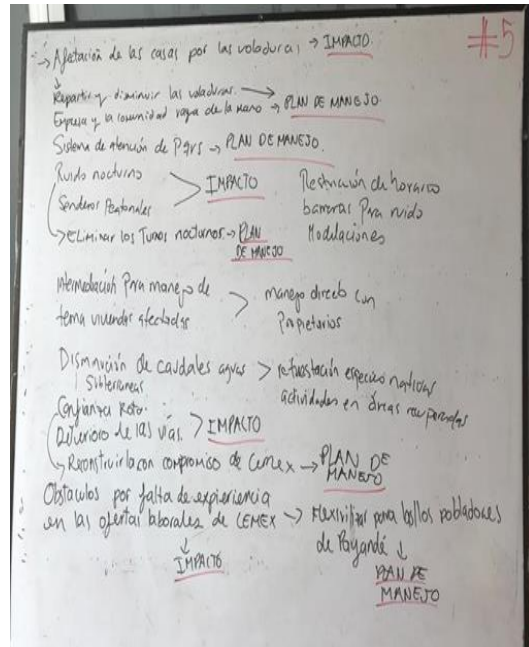 #5
→ Afectación de las casas por las voladuras → IMPACTO.
Repartir y disminuir las voladuras. →
Empresa y la comunidad vaya de la mano → PLAN DE MANEJO.
Sistema de atención de Pqrs → PLAN DE MANEJO.
Ruido nocturno
Senderos Peatonales > IMPACTO
→ Eliminar los Turnos nocturnos → PLAN
DE MANEJO
Restricción de horarios
barreras Para ruido
Modulaciones
Intermediación Para manejo de
tema viviendas afectadas > manejo directo con
Propietarios
Disminución de caudales aguas > reforestación especies nativas
Subterraneas
actividades en áreas recuperadas
Confianza Rota.
Deterioro de las vías. > IMPACTO
→ Reconstruirla con compromiso de Cemex → PLAN DE
MANEJO
Obstaculos por falta de experiencia
en las ofertas laborales de CEMEX → Flexivilizar para los pobladores
de Payandé ↓
↓
IMPACTO
PLAN DE
MANEJO